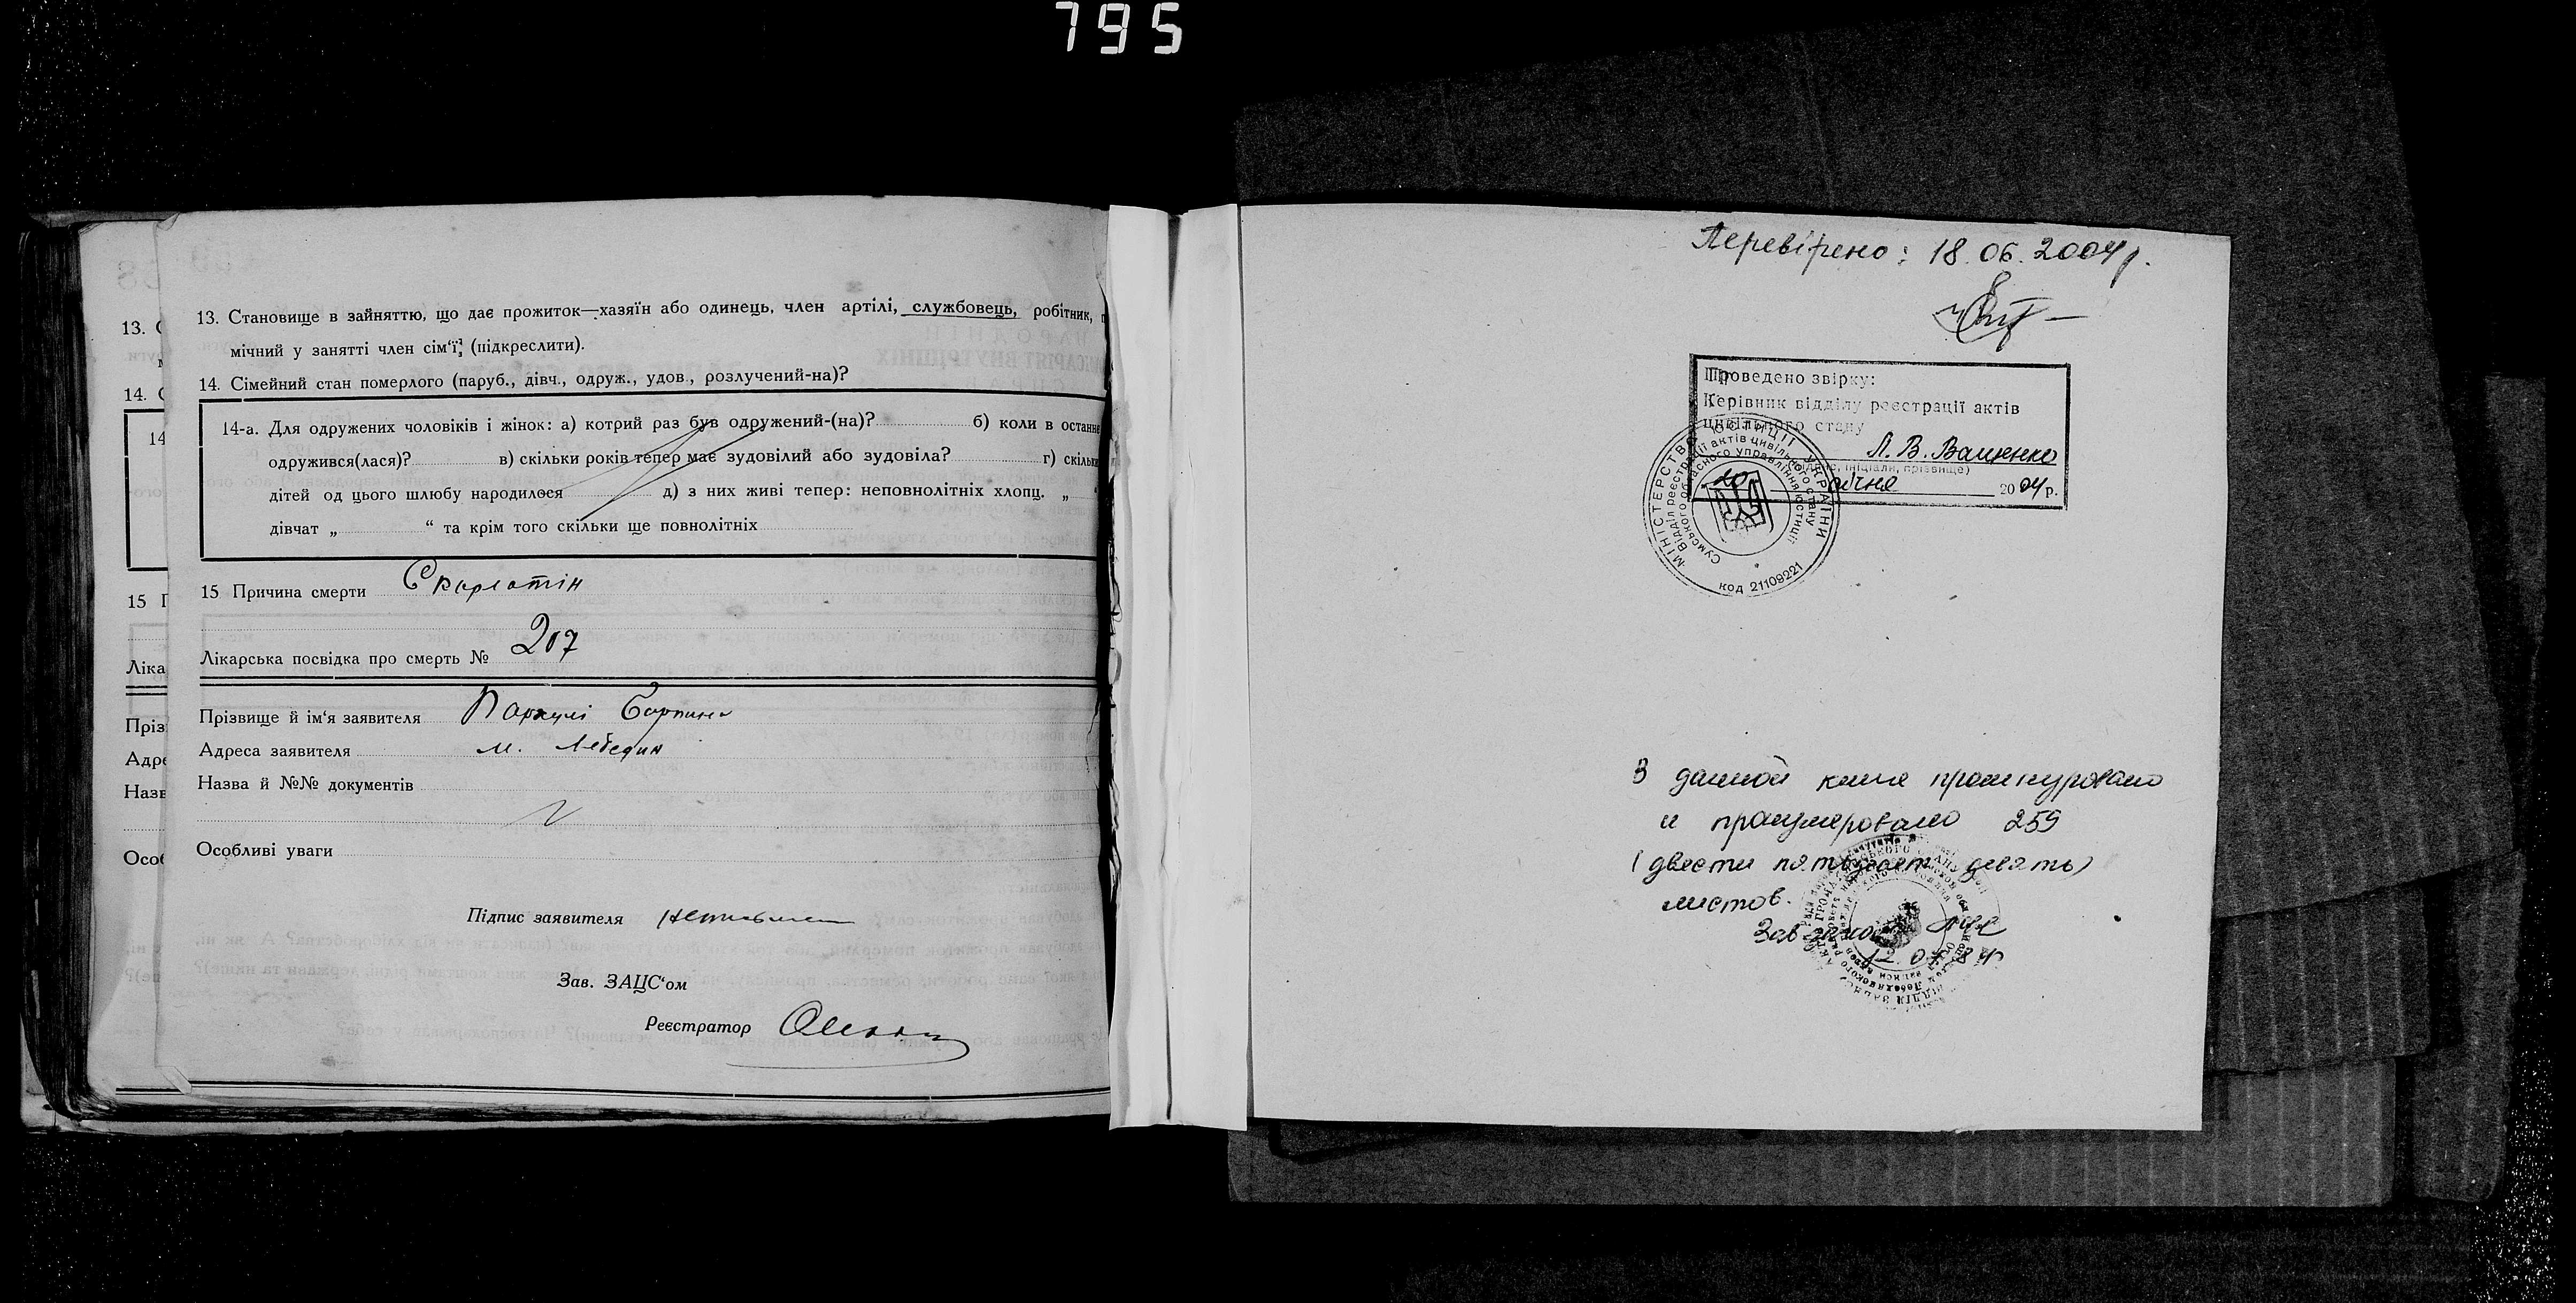 795
13. Становище в зайняттю, що дає прожиток—хазяїн або одинець, член артілі, службовець, робітник, п
мічний у занятті член сім'ї, (підкреслити).
14. Сімейний стан померлого (паруб., дівч., одруж., удов., розлучений-на)?
14-а. Для одружених чоловіків і жінок: а) котрий раз був одружений-(на)? б) коли в останнє
одружився(лася)? в) скільки років тепер має зудовілий або зудовіла? г) скільки
дітей од цього шлюбу народилося д) з них живі тепер: неповнолітніх хлопц. „
дівчат „ “ та крім того скільки ще повнолітніх
15 Причина смерти Скарлатін
Лікарська посвідка про смерть № 207
Прізвище й ім'я заявителя
Адреса заявителя м. Лебедин
Назва й №№ документів
Особливі уваги
Підпис заявителя
Зав. ЗАЦС'ом
Реєстратор
13. С
14. С
14
15 П
Ліка
Пріз
Адре
Назв
Особ
Перевірено: 18.06.2004р.
Проведено звірку:
Керівник відділу реєстрації актів
цивільного стану
Л. В. Ващенко
(підпис, ініціали, прізвище)
10 січня 2004 р.
МІНІСТЕРСТВО ЮСТИЦІЇ УКРАЇНИ
Відділ реєстрації актів цивільного стану
Сумського обласного управління юстиції
код 21109221
В данной книге прошнуровано
и пронумеровано 259
(двести пятьдесят девять)
листов.